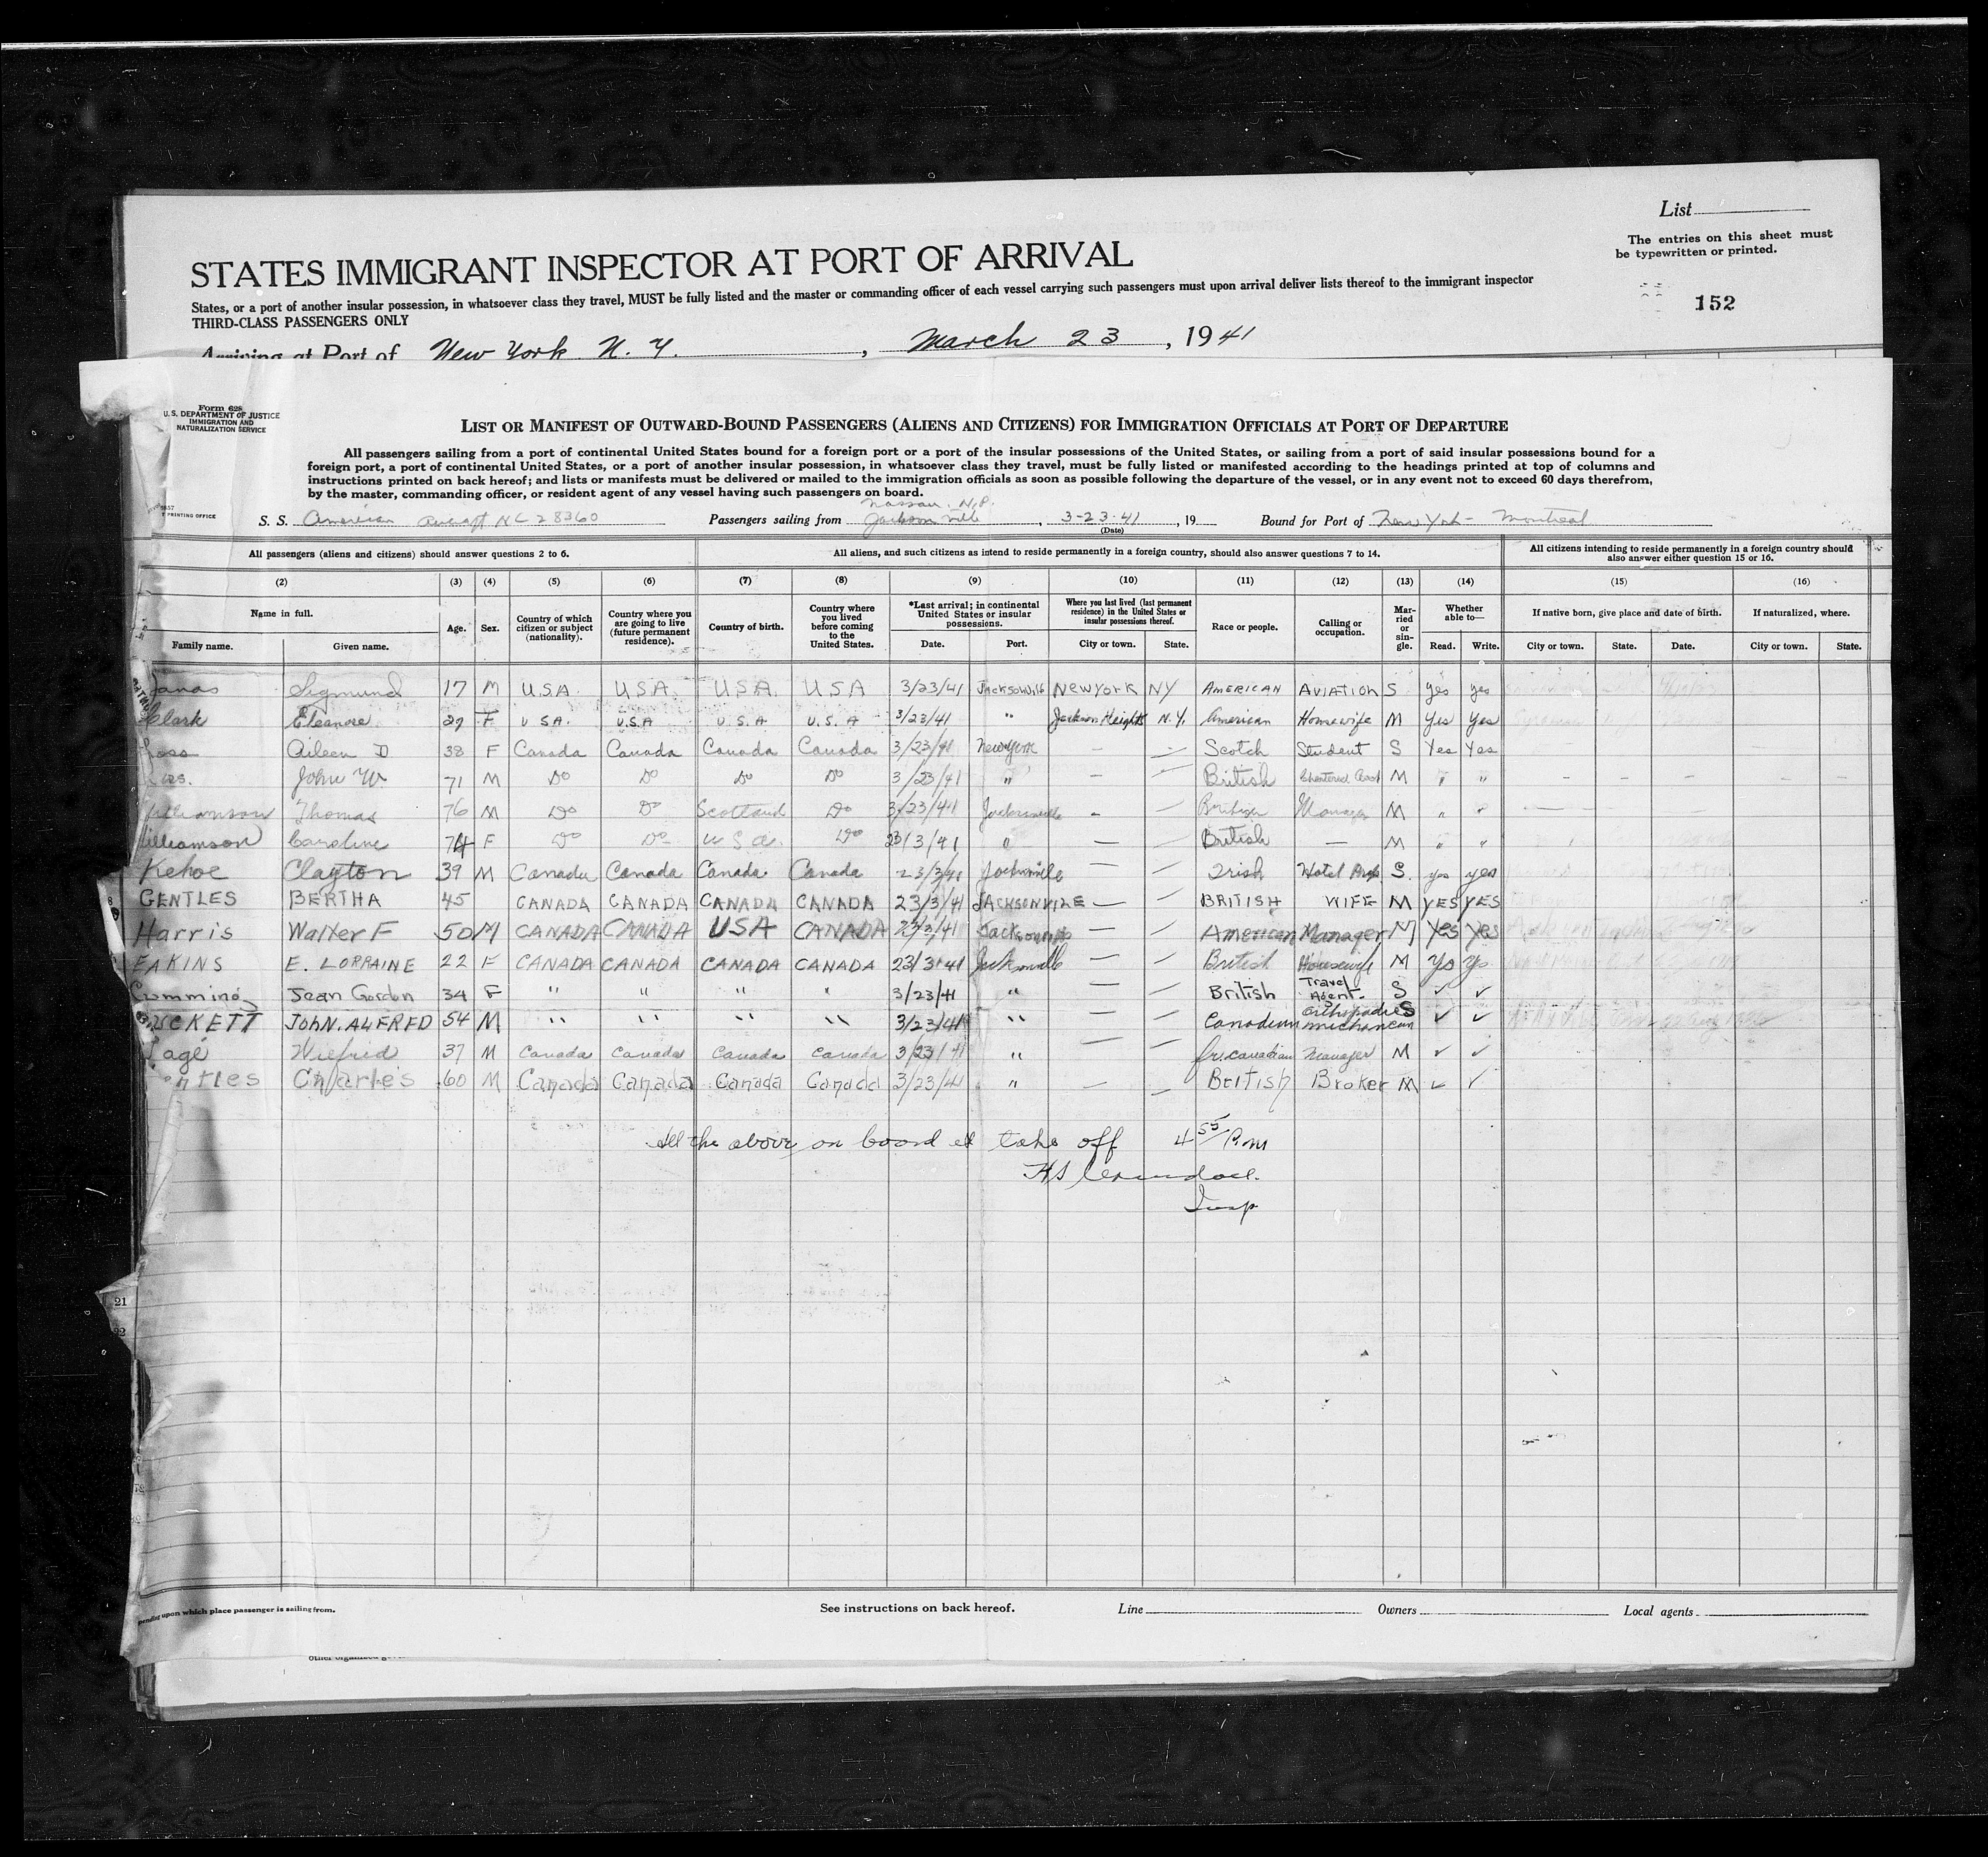 List
The entries on this sheet must
be typewritten or printed.
152
STATES IMMIGRANT INSPECTOR AT PORT OF ARRIVAL
States, or a port of another insular possession, in whatsoever class they travel, MUST be fully listed and the master or commanding officer of each vessel carrying such passengers must upon arrival deliver lists thereof to the immigrant inspector
THIRD-CLASS PASSENGERS ONLY
Arriving at Port of New York N. Y. , March 23 , 1941
Form 628
U. S. DEPARTMENT OF JUSTICE
IMMIGRATION AND
NATURALIZATION SERVICE
LIST OR MANIFEST OF OUTWARD-BOUND PASSENGERS (ALIENS AND CITIZENS) FOR IMMIGRATION OFFICIALS AT PORT OF DEPARTURE
All passengers sailing from a port of continental United States bound for a foreign port or a port of the insular possessions of the United States, or sailing from a port of said insular possessions bound for a
foreign port, a port of continental United States, or a port of another insular possession, in whatsoever class they travel, must be fully listed or manifested according to the headings printed at top of columns and
instructions printed on back hereof; and lists or manifests must be delivered or mailed to the immigration officials as soon as possible following the departure of the vessel, or in any event not to exceed 60 days therefrom,
by the master, commanding officer, or resident agent of any vessel having such passengers on board.
PRINTING OFFICE
Nassau, N.P.
S. S. American aircraft NC 28360 Passengers sailing from Jacksonville , 3-23-41 , 19 Bound for Port of New York - Montreal
(Date)
All passengers (aliens and citizens) should answer questions 2 to 6.
All aliens, and such citizens as intend to reside permanently in a foreign country, should also answer questions 7 to 14.
All citizens intending to reside permanently in a foreign country should
also answer either question 15 or 16.
(2) (3) (4) (5) (6) (7) (8) (9) (10) (11) (12) (13) (14) (15) (16)
Name in full.
Family name. Given name.
Age.
Sex.
Country of which
citizen or subject
(nationality).
Country where you
are going to live
(future permanent
residence).
Country of birth.
Country where
you lived
before coming
to the
United States.
*Last arrival; in continental
United States or insular
possessions.
Date. Port.
Where you last lived (last permanent
residence) in the United States or
insular possessions thereof.
City or town. State.
Race or people.
Calling or
occupation.
Mar-
ried
or
sin-
gle.
Whether
able to—
Read. Write.
If native born, give place and date of birth.
City or town. State. Date.
If naturalized, where.
City or town. State.
Janas Sigmund 17 M U.S.A. U.S.A. U.S.A. U S A 3/23/41 Jacksonville New York NY AMERICAN AVIATION S yes yes
Clark Eleanore 27 F U SA. U.S.A U.S.A U.S.A 3/23/41 " Jackson Heights N.Y. American Housewife M Yes Yes
Aileen D 38 F Canada Canada Canada Canada 3/23/41 New York – – Scotch Student S Yes Yes
John W. 71 M Do Do Do Do 3/23/41 " – – British M " " – – – – –
Williamson Thomas 76 M Do Do Scotland Do 3/23/41 Jacksonville – – British Manager M " "
Williamson Caroline 74 F Do Do U S A. Do 23/3/41 " – – British – M " "
Kehoe Clayton 39 M Canada Canada Canada Canada 23/3/41 Jacksonville – – Irish Hotel Prop. S. yes yes
GENTLES BERTHA 45 CANADA CANADA CANADA CANADA 23/3/41 JACKSONVILLE – – BRITISH WIFE M YES YES
Harris Walter F 50 M CANADA CANADA USA CANADA 23/3/41 Jacksonville – – American Manager M Yes Yes
EAKINS E. LORRAINE 22 F CANADA CANADA CANADA CANADA 23/3/41 Jacksonville – – British Housewife M Yes Yes
Cumming Jean Gordon 34 F " " " " 3/23/41 " – – British Travel Agent. S ✓ ✓
UCKETT JOHN. ALFRED 54 M " " " " 3/23/41 " – – Canadian orthopadic mechanican S ✓ ✓
Wilfrid 37 M Canada Canada Canada Canada 3/23/41 " – – fr. canadian manager M ✓ ✓
Gentles Charles 60 M Canada Canada Canada Canada 3/23/41 " – – British Broker M ✓ ✓
All the above on board at take off 4 55/ P.m
Insp
21
22
pending upon which place passenger is sailing from.
See instructions on back hereof.
Line Owners Local agents